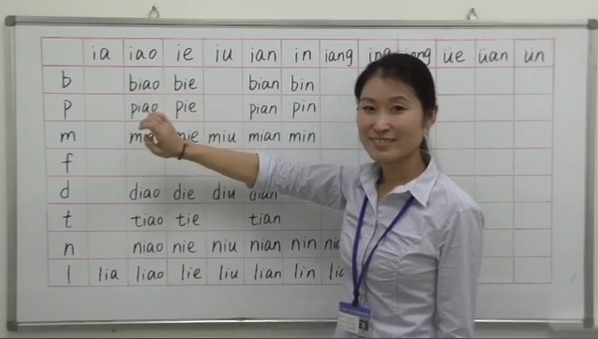 ia iao ie iu ian in iang üe üan ün
b biao bie bian bin
p piao pie pian pin
m mie miu mian min
f
d diao die diu dian
t tiao tie tian
n niao nie niu nian nin
l lia liao lie liu lian lin